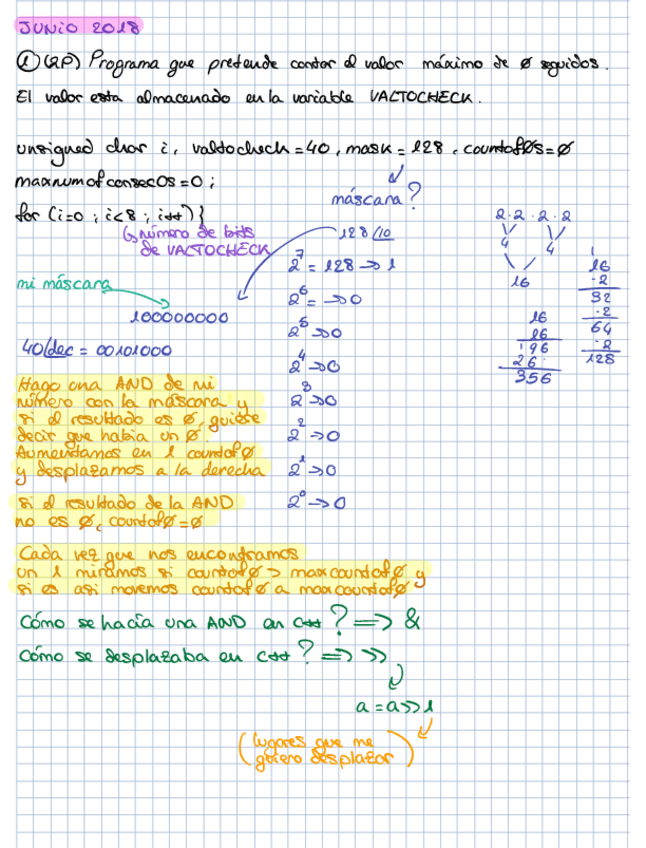 JUNIO 2018
① (2P) Programa que pretende contar el valor máximo de 0 seguidos.
El valor esta almacenado en la variable VALTOCHECK.
unsigned char i, valtocheck = 40, mask = 128, countof0s = 0
maxnumofconsec0s = 0;
máscara?
for (i=0 ; i<8 ; i++) {
↳ número de bits
de VALTOCHECK
128/10
2⁷ = 128 → 1
2⁶ = → 0
2⁵ → 0
2⁴ → 0
2³ → 0
2² → 0
2¹ → 0
2⁰ → 0
2·2·2·2
4 4
16
16
16
196
26
356
1
16
·2
32
·2
64
·2
128
mi máscara
100000000
40/dec = 00101000
Hago una AND de mi
número con la máscara y
si el resultado es 0, quiere
decir que había un 0.
Aumentamos en 1 countof0
y desplazamos a la derecha
si el resultado de la AND
no es 0, countof0=0
Cada vez que nos encontramos
un 1 miramos si countof0 > maxcountof0 y
si es asi movemos countof0 a maxcountof0
Cómo se hacía una AND en C++ ? => &
Cómo se desplazaba en C++ ? => >>
a = a>>1
(lugares que me
quiero desplazar)